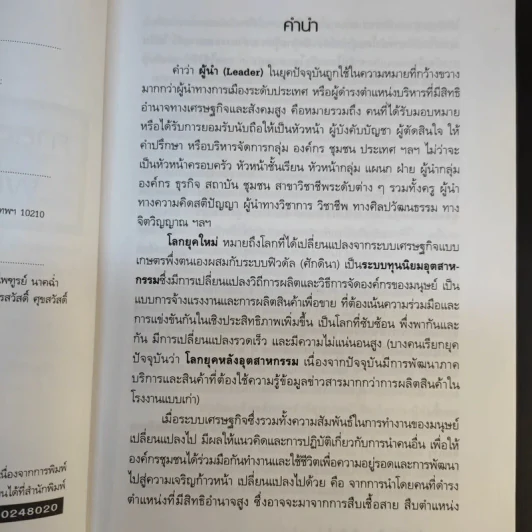 คำนำ
คำว่า ผู้นำ (Leader) ในยุคปัจจุบันถูกใช้ในความหมายที่กว้างขวาง
มากกว่าผู้นำทางการเมืองระดับประเทศ หรือผู้ดำรงตำแหน่งบริหารที่มีสิทธิ
อำนาจทางเศรษฐกิจและสังคมสูง คือหมายรวมถึง คนที่ได้รับมอบหมาย
หรือได้รับการยอมรับนับถือให้เป็นหัวหน้า ผู้บังคับบัญชา ผู้ตัดสินใจ ให้
คำปรึกษา หรือบริหารจัดการกลุ่ม องค์กร ชุมชน ประเทศ ฯลฯ ไม่ว่าจะ
เป็นหัวหน้าครอบครัว หัวหน้าชั้นเรียน หัวหน้ากลุ่ม แผนก ฝ่าย ผู้นำกลุ่ม
องค์กร ธุรกิจ สถาบัน ชุมชน สาขาวิชาชีพระดับต่าง ๆ รวมทั้งครู ผู้นำ
ทางความคิดสติปัญญา ผู้นำทางวิชาการ วิชาชีพ ทางศิลปวัฒนธรรม ทาง
จิตวิญญาณ ฯลฯ
โลกยุคใหม่ หมายถึงโลกที่ได้เปลี่ยนแปลงจากระบบเศรษฐกิจแบบ
เกษตรพึ่งตนเองผสมกับระบบฟิวดัล (ศักดินา) เป็นระบบทุนนิยมอุตสาห-
กรรมซึ่งมีการเปลี่ยนแปลงวิถีการผลิตและวิธีการจัดองค์กรของมนุษย์ เป็น
แบบการจ้างแรงงานและการผลิตสินค้าเพื่อขาย ที่ต้องเน้นความร่วมมือและ
การแข่งขันกันในเชิงประสิทธิภาพเพิ่มขึ้น เป็นโลกที่ซับซ้อน พึ่งพากันและ
กัน มีการเปลี่ยนแปลงรวดเร็ว และมีความไม่แน่นอนสูง (บางคนเรียกยุค
ปัจจุบันว่า โลกยุคหลังอุตสาหกรรม เนื่องจากปัจจุบันมีการพัฒนาภาค
บริการและสินค้าที่ต้องใช้ความรู้ข้อมูลข่าวสารมากกว่าการผลิตสินค้าใน
โรงงานแบบเก่า)
เมื่อระบบเศรษฐกิจซึ่งรวมทั้งความสัมพันธ์ในการทำงานของมนุษย์
เปลี่ยนแปลงไป มีผลให้แนวคิดและการปฏิบัติเกี่ยวกับการนำคนอื่น เพื่อให้
องค์กรชุมชนได้ร่วมมือกันทำงานและใช้ชีวิตเพื่อความอยู่รอดและการพัฒนา
ไปสู่ความเจริญก้าวหน้า เปลี่ยนแปลงไปด้วย คือ จากการนำโดยคนที่ดำรง
ตำแหน่งที่มีสิทธิอำนาจสูง ซึ่งอาจจะมาจากการสืบเชื้อสาย สืบตำแหน่ง
ทพฯ 10210
ไพฑูรย์ นาคฉ่ำ
สวัสดิ์ ศุขสวัสดิ์
เนื่องจากการพิมพ์
นได้ที่สำนักพิมพ์
0248020